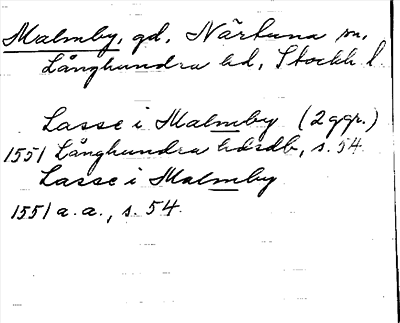 Malmby, gd, Närtuna sn,
Långhundra hd, Stockh l.
Lasse i Malmby (2 ggr.)
1551 Långhundra härdb, s. 54
Lasse i Malmby
1551 a. a., s. 54.